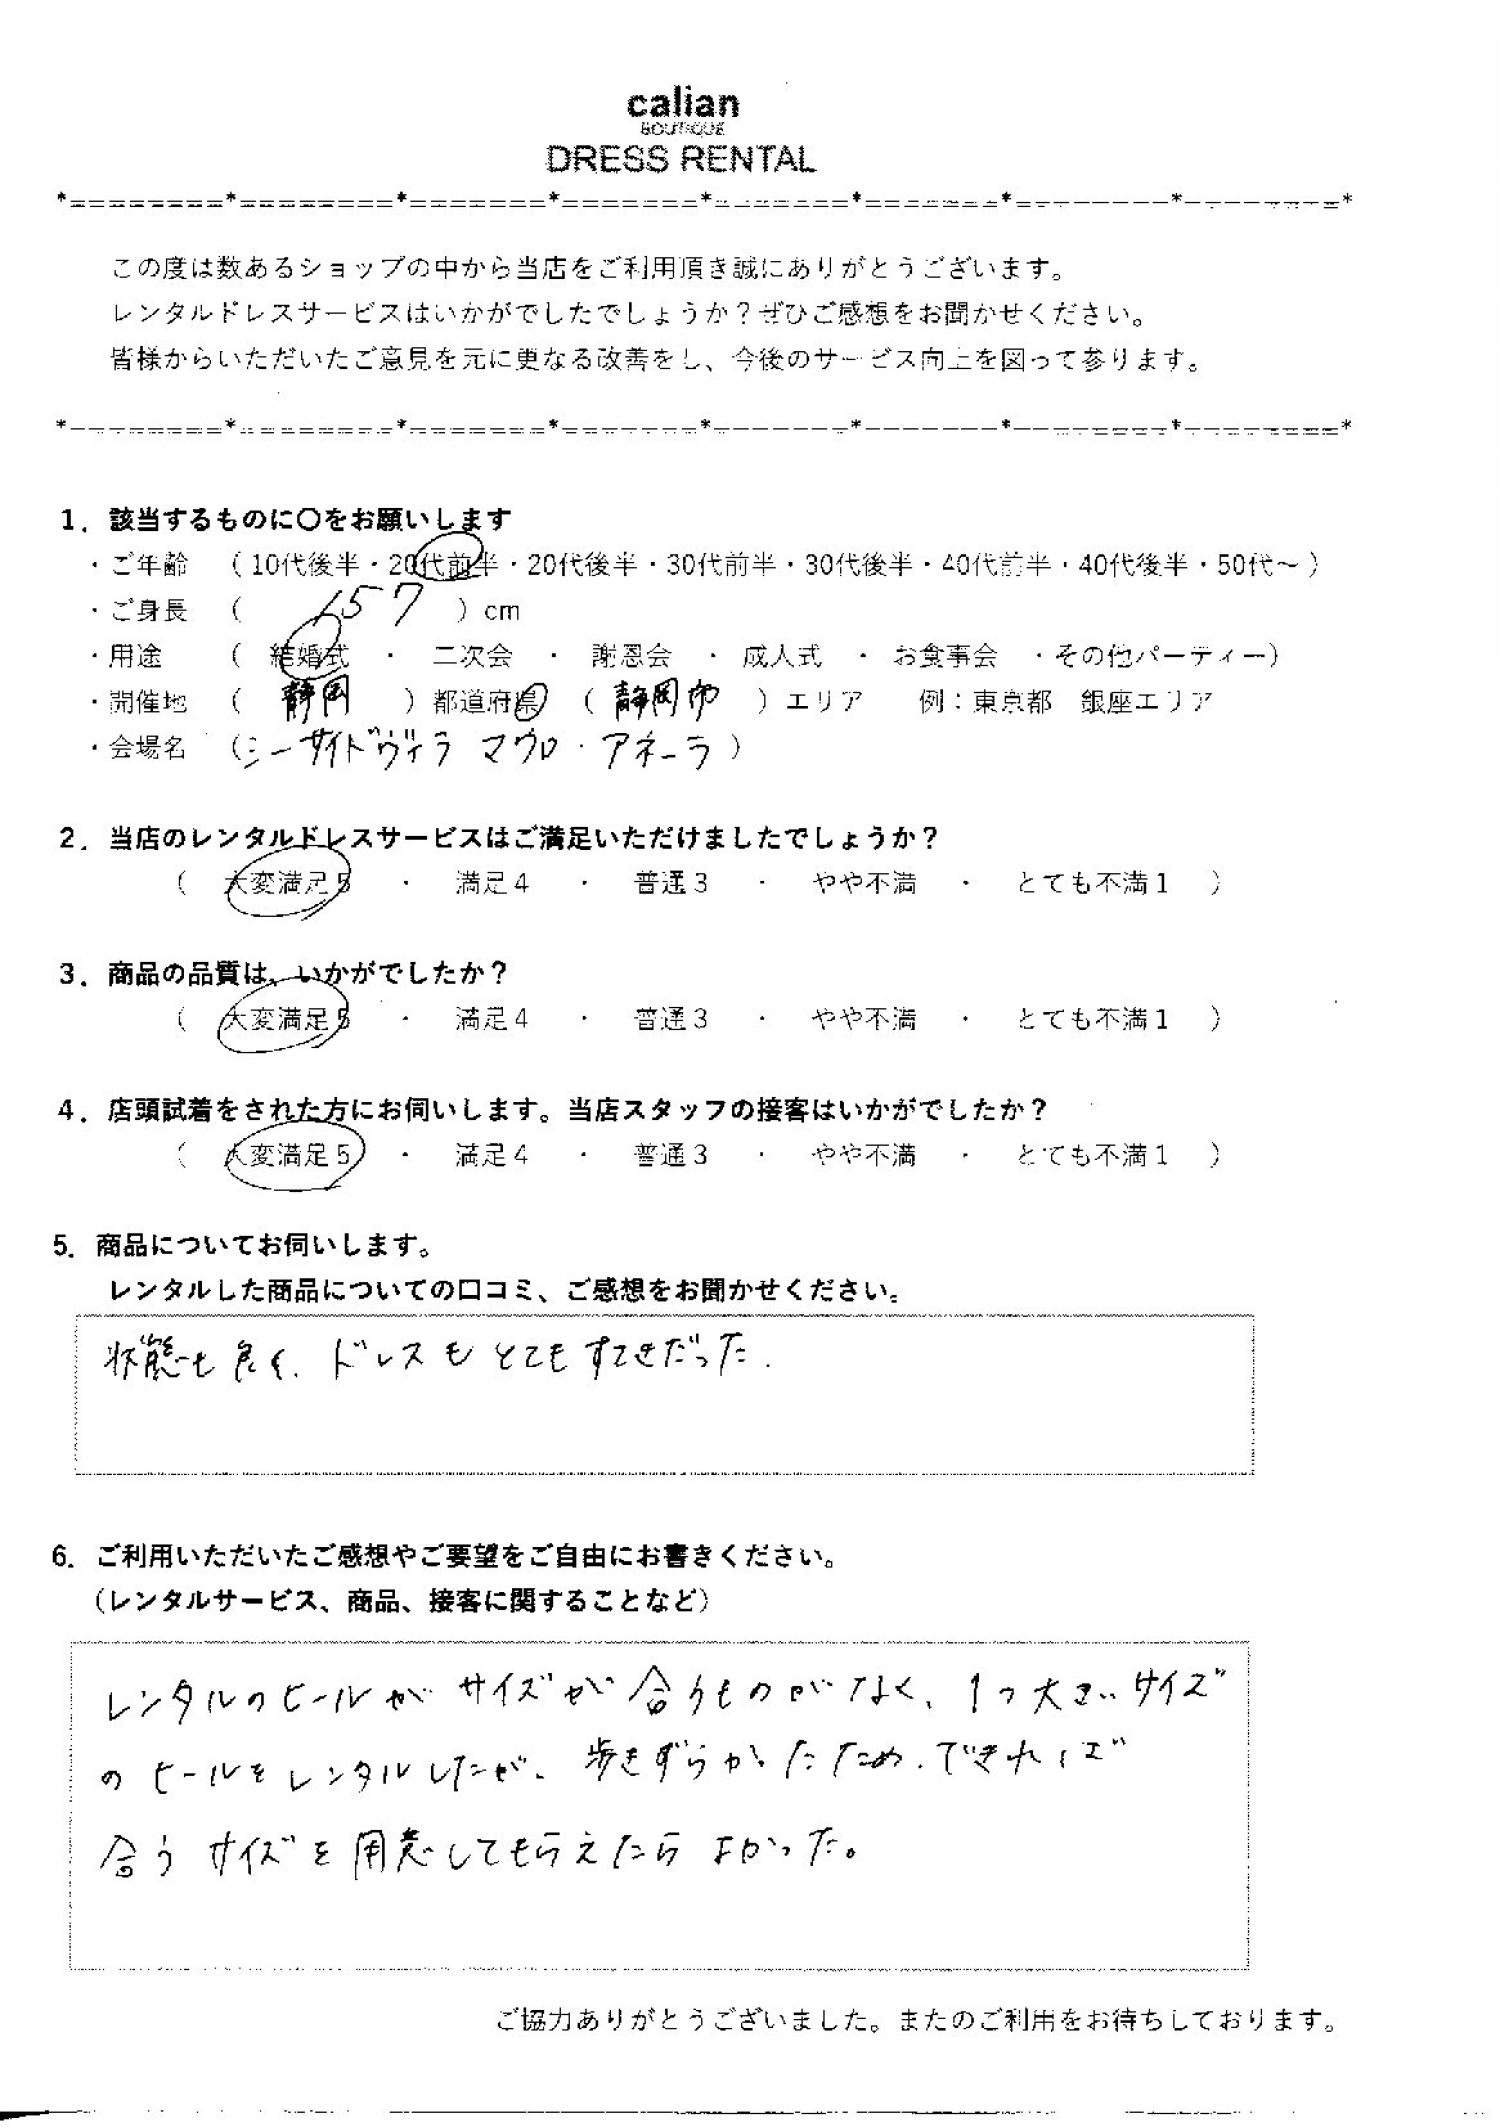 calian
BOUTIQUE
DRESS RENTAL
*========*========*=======*=======*=======*=======*========*========*
この度は数あるショップの中から当店をご利用頂き誠にありがとうございます。
レンタルドレスサービスはいかがでしたでしょうか？ぜひご感想をお聞かせください。
皆様からいただいたご意見を元に更なる改善をし、今後のサービス向上を図って参ります。
*========*========*=======*=======*=======*=======*========*========*
1．該当するものに〇をお願いします
・ご年齢 （ 10代後半・20代前半・20代後半・30代前半・30代後半・40代前半・40代後半・50代～ ）
・ご身長 （ 157 ）cm
・用途 （ 結婚式 ・ 二次会 ・ 謝恩会 ・ 成人式 ・ お食事会 ・その他パーティー）
・開催地 （ 静岡 ）都道府県 （ 静岡市 ）エリア 例：東京都 銀座エリア
・会場名 （シーサイドヴィラ マウロ・アネーラ ）
2．当店のレンタルドレスサービスはご満足いただけましたでしょうか？
（ 大変満足5 ・ 満足4 ・ 普通3 ・ やや不満 ・ とても不満1 ）
3．商品の品質は、いかがでしたか？
（ 大変満足5 ・ 満足4 ・ 普通3 ・ やや不満 ・ とても不満1 ）
4．店頭試着をされた方にお伺いします。当店スタッフの接客はいかがでしたか？
（ 大変満足5 ・ 満足4 ・ 普通3 ・ やや不満 ・ とても不満1 ）
5．商品についてお伺いします。
レンタルした商品についての口コミ、ご感想をお聞かせください。
状態も良く、ドレスもとてもすてきだった.
6．ご利用いただいたご感想やご要望をご自由にお書きください。
（レンタルサービス、商品、接客に関することなど）
レンタルのヒールがサイズが合うものがなく、1つ大きいサイズ
のヒールをレンタルしたが、歩きずらかったため、できれば
合うサイズを用意してもらえたらよかった。
ご協力ありがとうございました。またのご利用をお待ちしております。